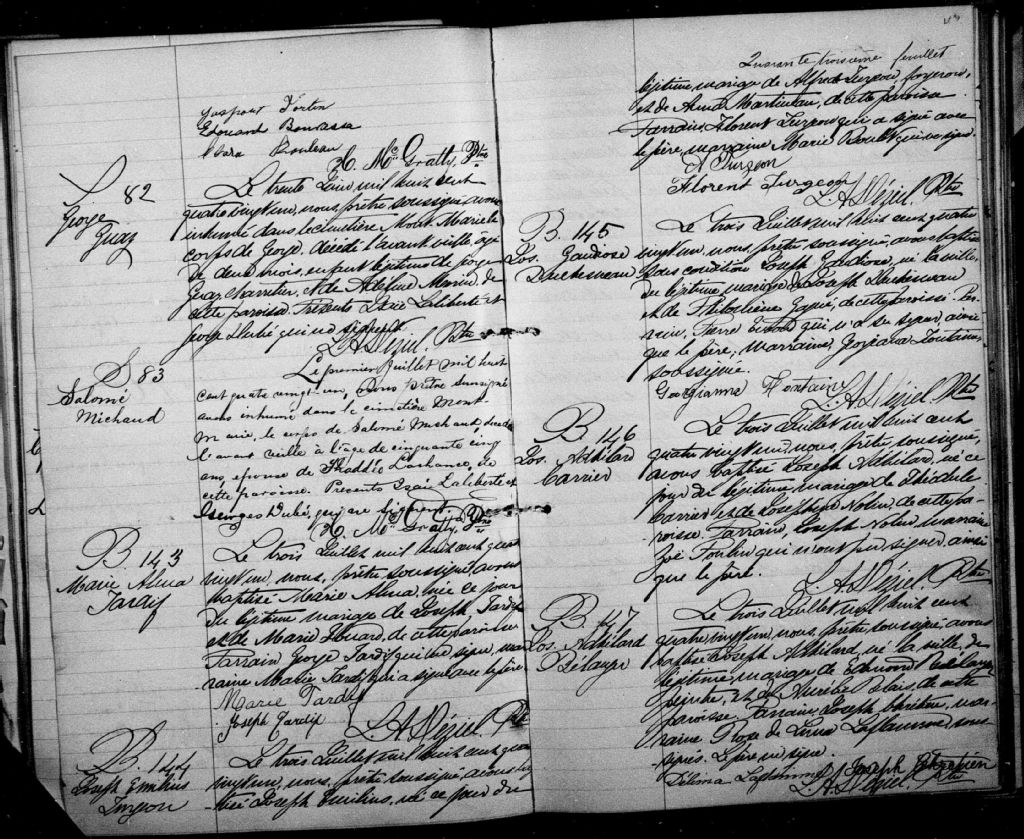 Gaspard Fortin
Edouard Bourassa
Bouleau
H. McGratty, Ptre
S 82
George
Guay
Le trente Juin mil huit cent
quatre vingt un, nous, prêtre soussigné avons
inhumé dans le cimetière Mont Marie le
corps de George, décédé l'avant veille, âgé
de deux mois, enfant légitime de George
Guay, charretier, et de Adeline Morin, de
cette paroisse. Présents Isaie Laliberté et
George Dubé qui ne signent
L.A. Déziel Ptre
S 83
Salomé
Michaud
Le premier Juillet mil huit
cent quatre vingt-un, Nous Prêtre Soussigné
avons inhumé dans le cimetière Mont-
Marie, le corps de Salomé Michaud, décédée
l'avant veille à l'âge de cinquante cinq
ans, épouse de Thaddée Lachance, de
cette paroisse. Présents Isaïe Laliberté et
Georges Dubé, qui
H. McGratty, Ptre
B. 143
Marie Alma
Tardif
Le trois Juillet mil huit cent quatre
vingt un, nous, prêtre soussigné avons
baptisé Marie Alma, née ce jour
du légitime mariage de Joseph Tardif
et de Marie Huard, de cette paroisse
Parrain George Tardif qui ne signe, mar-
raine Marie Tardif qui a signé avec le père
Marie Tardif
Joseph Tardif
L.A. Déziel Ptre
B. 144
Joseph Emilius
Turgeon
Le trois Juillet mil huit cent quatre
vingt un, nous, prêtre soussigné, avons bap-
tisé Joseph Emilius, né ce jour du
Quarante troisième feuillet
légitime mariage de Alfred Turgeon, forgeron,
et de Anna Martineau, de cette paroisse.
Parrain, Florent Turgeon qui a signé avec
le père, marraine Marie Boulet qui ne signe
A Turgeon
Florent Turgeon
L.A. Déziel Ptre
B. 145
Jos. Gaudiose
Duchesneau
Le trois Juillet mil huit cent quatre
vingt un, nous, prêtre soussigné, avons baptisé
sous condition Joseph Gaudiose, né la veille,
du légitime mariage de Joseph Duchesneau
et de Philomène, de cette paroisse. Par-
rain, Pierre qui n'a su signer, ainsi
que le père, Marraine, Georgiana Fontaine,
soussignée.
Georgianna Fontaine
L.A. Déziel Ptre
B. 146
Jos. Adhilard
Carrier
Le trois Juillet mil huit cent
quatre vingt un, nous, prêtre soussigné,
avons baptisé Joseph Adhilard, né ce
jour du légitime mariage de Thédule
Carrier et de Josephine Nolin, de cette pa-
roisse. Parrain, Joseph Nolin, Marraine
Zoé Fortin qui n'ont pu signer, ainsi
que le père.
L.A. Déziel Ptre
B. 147
Jos. Adhilard
Bélanger
Le trois Juillet mil huit cent
quatre vingt un, nous, prêtre soussigné avons
baptisé Joseph Adhilard, né la veille, du
légitime mariage de Edmond Bélanger
peintre, et de Aurélie Blais, de cette
paroisse. Parrain Joseph Chrétien, mar-
raine Rose de Lima Laflamme, sous-
signés. Le père ne signe.
Delima Laflamme Joseph Chrétien
L.A. Déziel Ptre